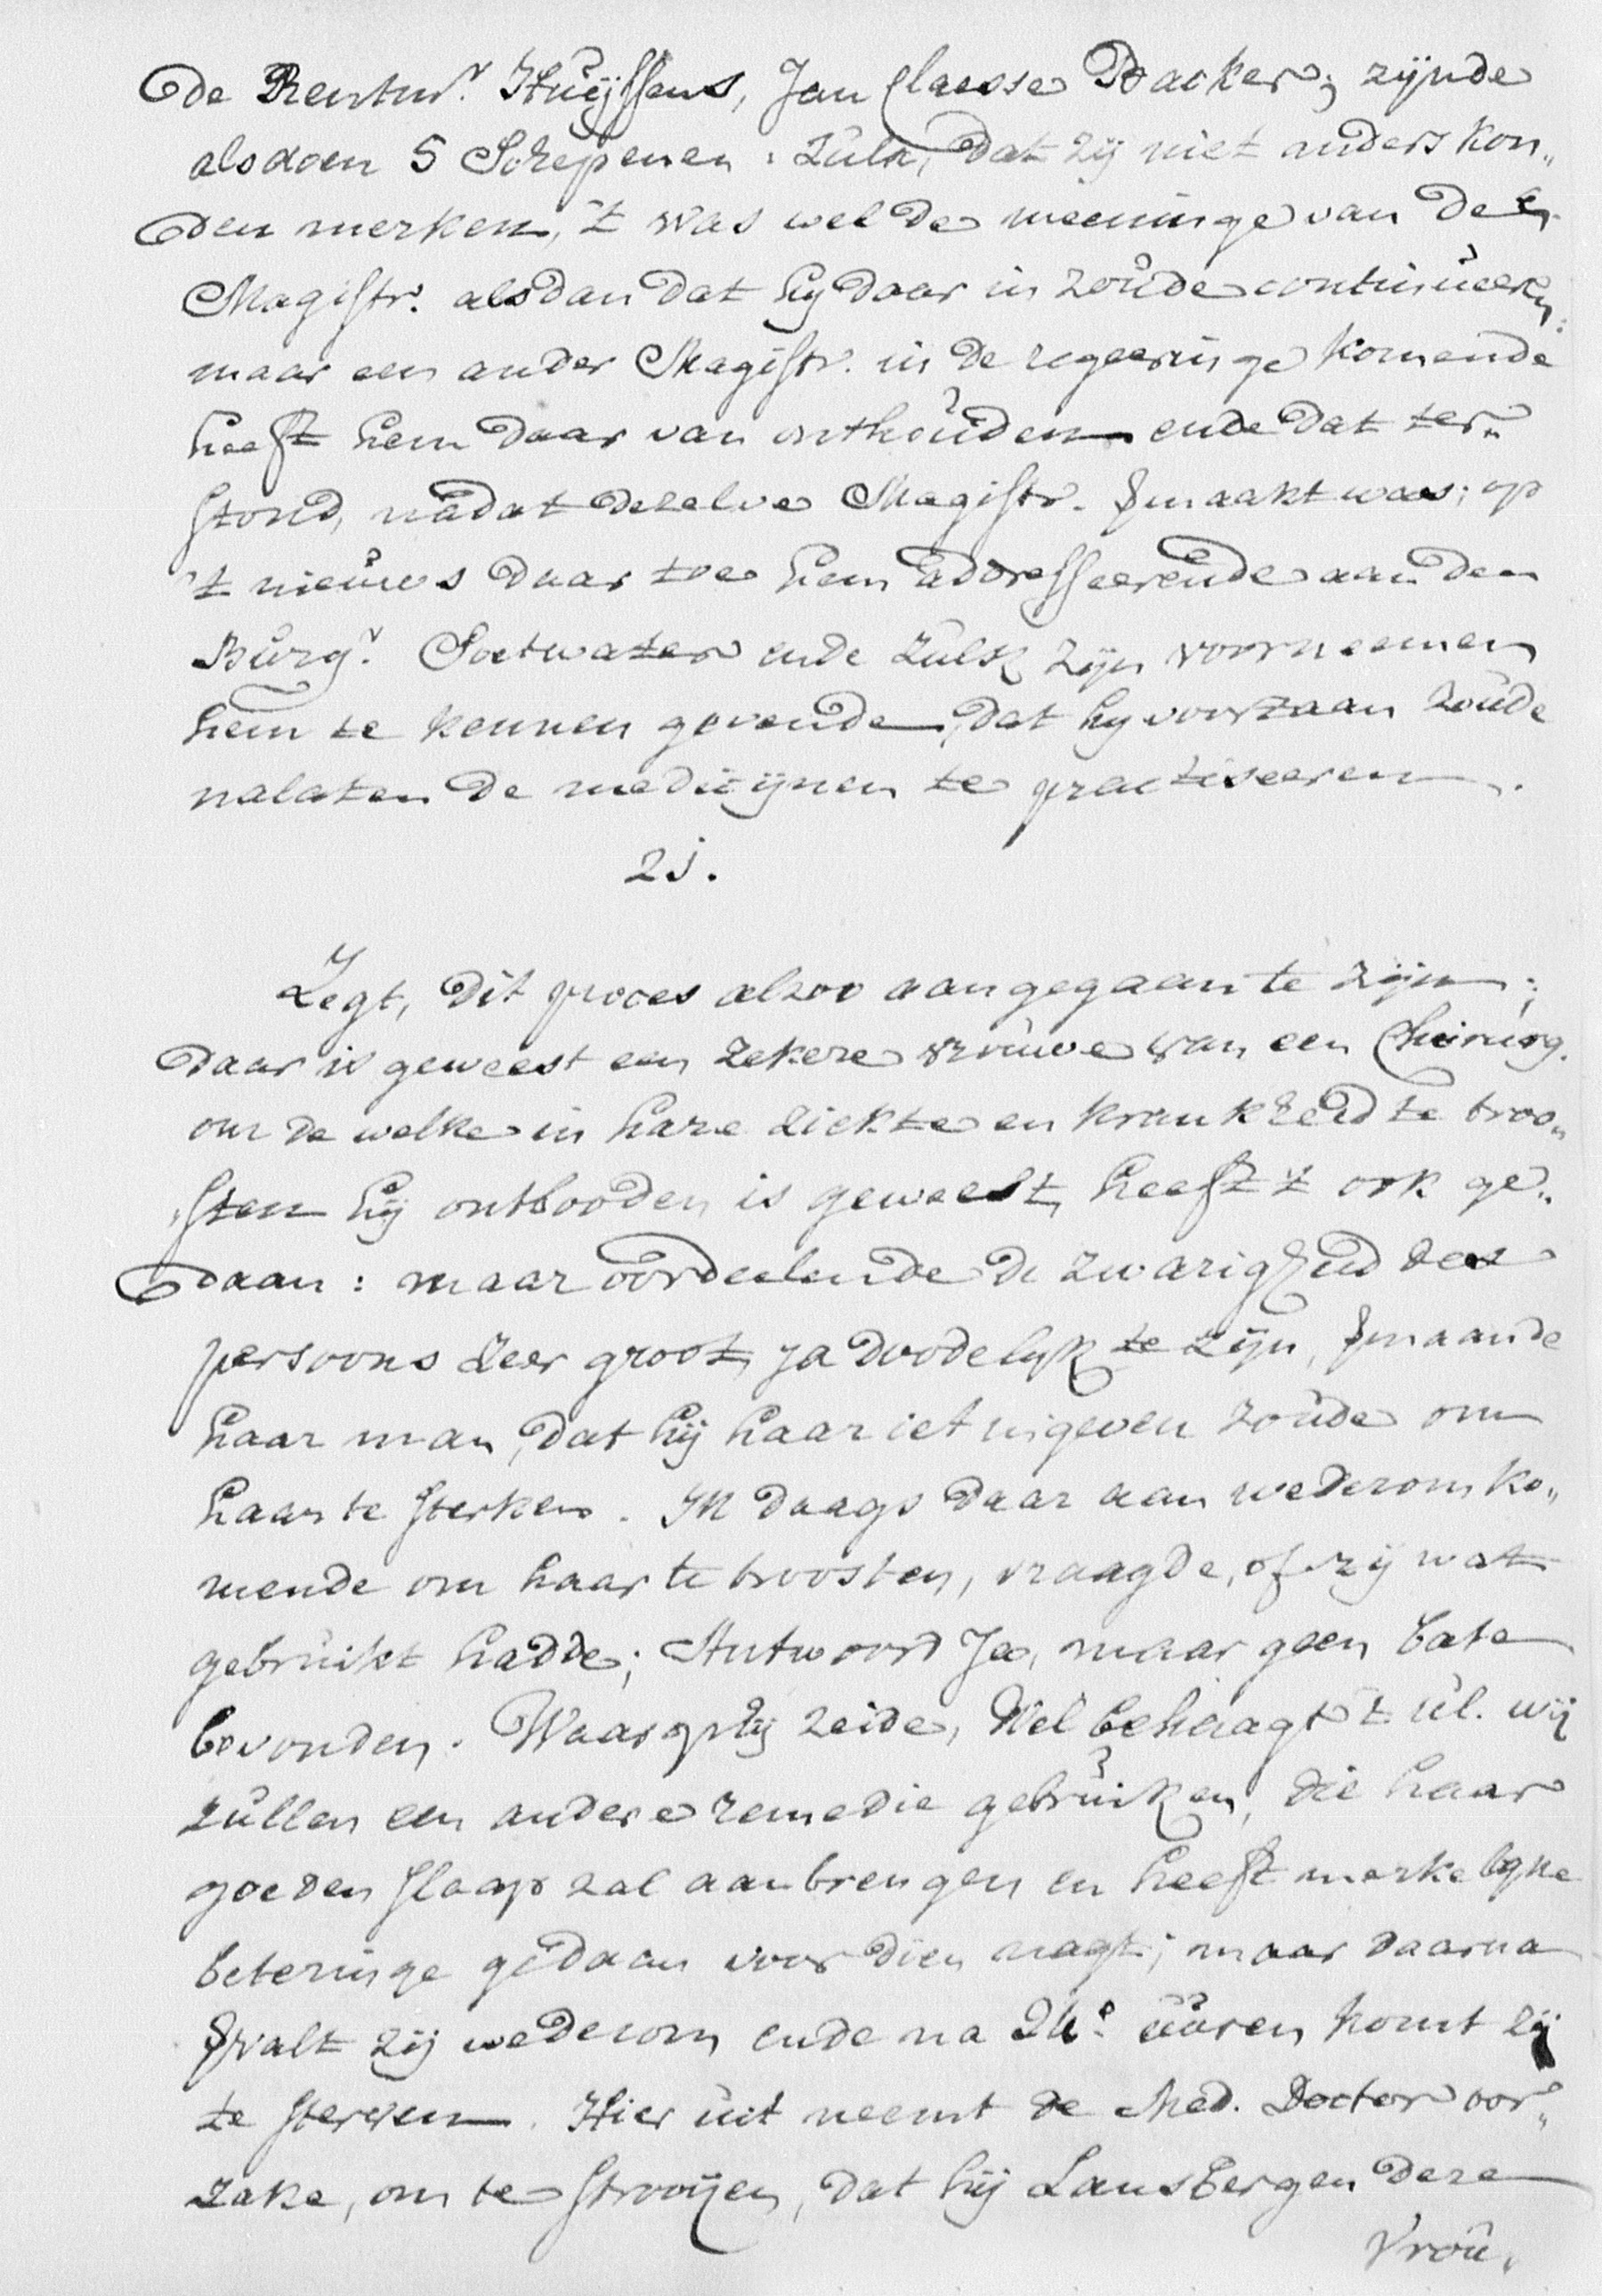 de Rentmr. Huÿssens, Jan Claesse Backer; zijnde
als doen 5 Schepenen: Zulx, dat zij niet anders kon„
den merken, 't was wel de meeninge van de E.
Magistr. als dan dat hy daar in zoude continueeren:
maar een ander Magistr. in de regeeringe komende
heeft hem daar van onthouden ende dat ter„
stond, nadat dezelve Magistr. gemaakt was; op
't nieuws daar toe hem adresseerende aan den
Burgr. Soetwater ende zulk zijn voorneemen
hem te kennen gevende, dat hy voortaan zoude
nalaten de medicijnen te practiseeren.
21.
Zegt, dit proces alzoo aangegaan te zijn;
daar is geweest een zekere vrouwe van een Chirurg.
om de welke in hare ziekte en krankheid te troo„
sten hij ontbooden is geweest, heeft 't ook ge„
daan: maar oordeelende de zwarigheid des
persoons zeer groot, ja doodelijk te zijn, vermaande
haar man, dat hij haar iet ingeven zoude om
haar te sterken. 'S daags daar aan wederom ko„
mende om haar te troosten, vraagde, of zij wat
gebruikt hadde; Antwoord Ja, maar geen bate
bevonden. Waar op hij zeide, Wel behaagt 't ul. wij
zullen een andere remedie gebruiken, die haar
goeden slaap zal aanbrengen en heeft merkelijke
beteringe gedaan voor dien nagt; maar daarna
vervalt zij wederom ende na 24. uuren komt zij
te sterven. Hier uit neemt de Med. Doctor oor„
zake, om te strooijen, dat hij Lansbergen deze
Vrou„